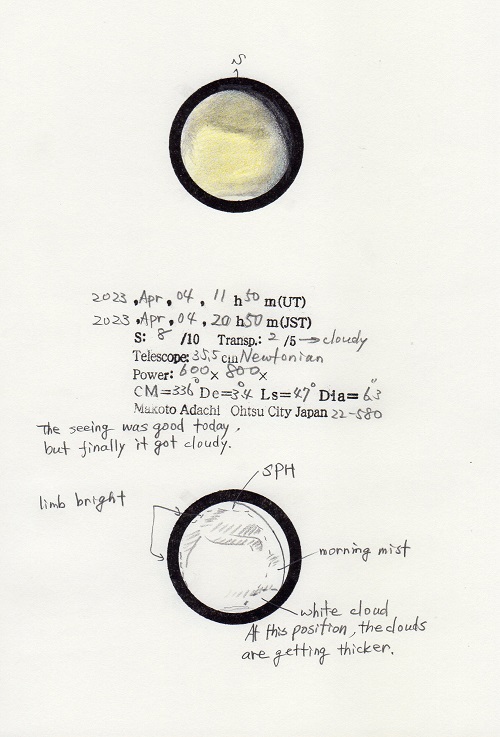 S
2023, Apr, 04, 11 h 50 m (UT)
2023, Apr, 04, 20 h 50 m (JST)
S: 8 /10 Transp.: 2 /5 → cloudy
Telescope: 35.5 cm Newtonian
Power: 600 × 800 ×
CM=336° De=3.4° Ls=47° Dia= 6.3"
Makoto Adachi Ohtsu City Japan 22-580
The seeing was good today,
but finally it got cloudy.
SPH
limb bright
morning mist
white cloud
At this position, the clouds
are getting thicker.